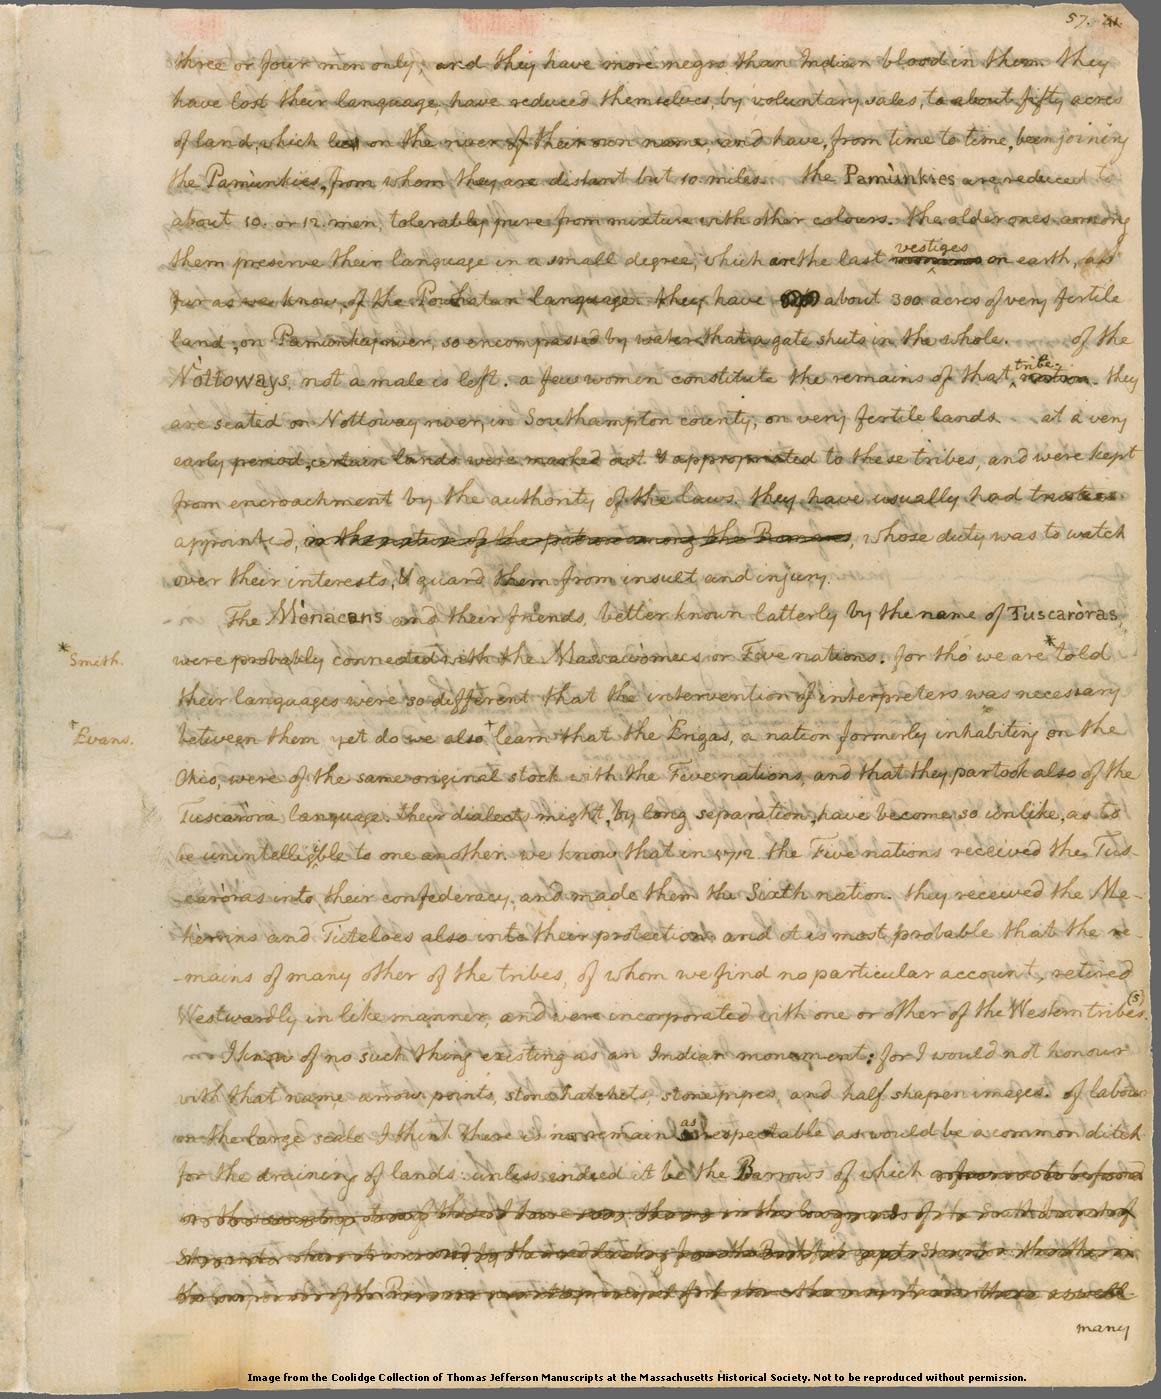 57. 41.
three or four men only, and they have more negro than Indian blood in them. they
have lost their language, have reduced themselves, by voluntary sales, to about fifty acres
of land, which lies on the river of their own name, and have, from time to time, been joining
the Pamùnkies, from whom they are distant but 10. miles. the Pamùnkies are reduced to
about 10. or 12. men, tolerably pure from mixture with other colours. the older ones among
vestiges
them preserve their language in a small degree, which are the last on earth, as
far as we know, of the Powhatan language. they have about 300 acres of very fertile
land, on Pamunkey river, so encompassed by water that a gate shuts in the whole. of the
tribe
Nòttoways, not a male is left. a few women constitute the remains of that nation. they
are seated on Nottoway river, in Southampton county, on very fertile lands. at a very
early period, certain lands were marked out & appropriated to these tribes, and were kept
from encroachment by the authority of the laws. they have usually had trustees
appointed, in the nature of the patrons among the Romans, whose duty was to watch
over their interests, & guard them from insult and injury.
The Mònacans and their friends, better known latterly by the name of Tuscaròras,
* Smith.
were probably connected with the Massawòmecs or Five nations. for tho' we are * told
their languages were so different that the intervention of interpreters was necessary
† Evans.
between them yet do we also † learn that the Erigas, a nation formerly inhabiting on the
Ohio, were of the same original stock with the Five nations, and that they partook also of the
Tuscaròra language. their dialects might, by long separation, have become so unlike, as to
be unintelligible to one another. we know that in 1712. the Five nations received the Tus-
-caròras into their confederacy, and made them the Sixth nation. they received the Me-
herrins and Tuteloes also into their protection: and it is most probable that the re-
-mains of many other of the tribes, of whom we find no particular account, retired
Westwardly in like manner, and were incorporated with one or other of the Western tribes. (5)
I know of no such thing existing as an Indian monument: for I would not honour
with that name arrow points, stone hatchets, stone pipes, and half shapen images. of labour
as
on the large scale I think there is no remain respectable as would be a common ditch
for the draining of lands: unless indeed it be the Barrows of which
many
Image from the Coolidge Collection of Thomas Jefferson Manuscripts at the Massachusetts Historical Society. Not to be reproduced without permission.